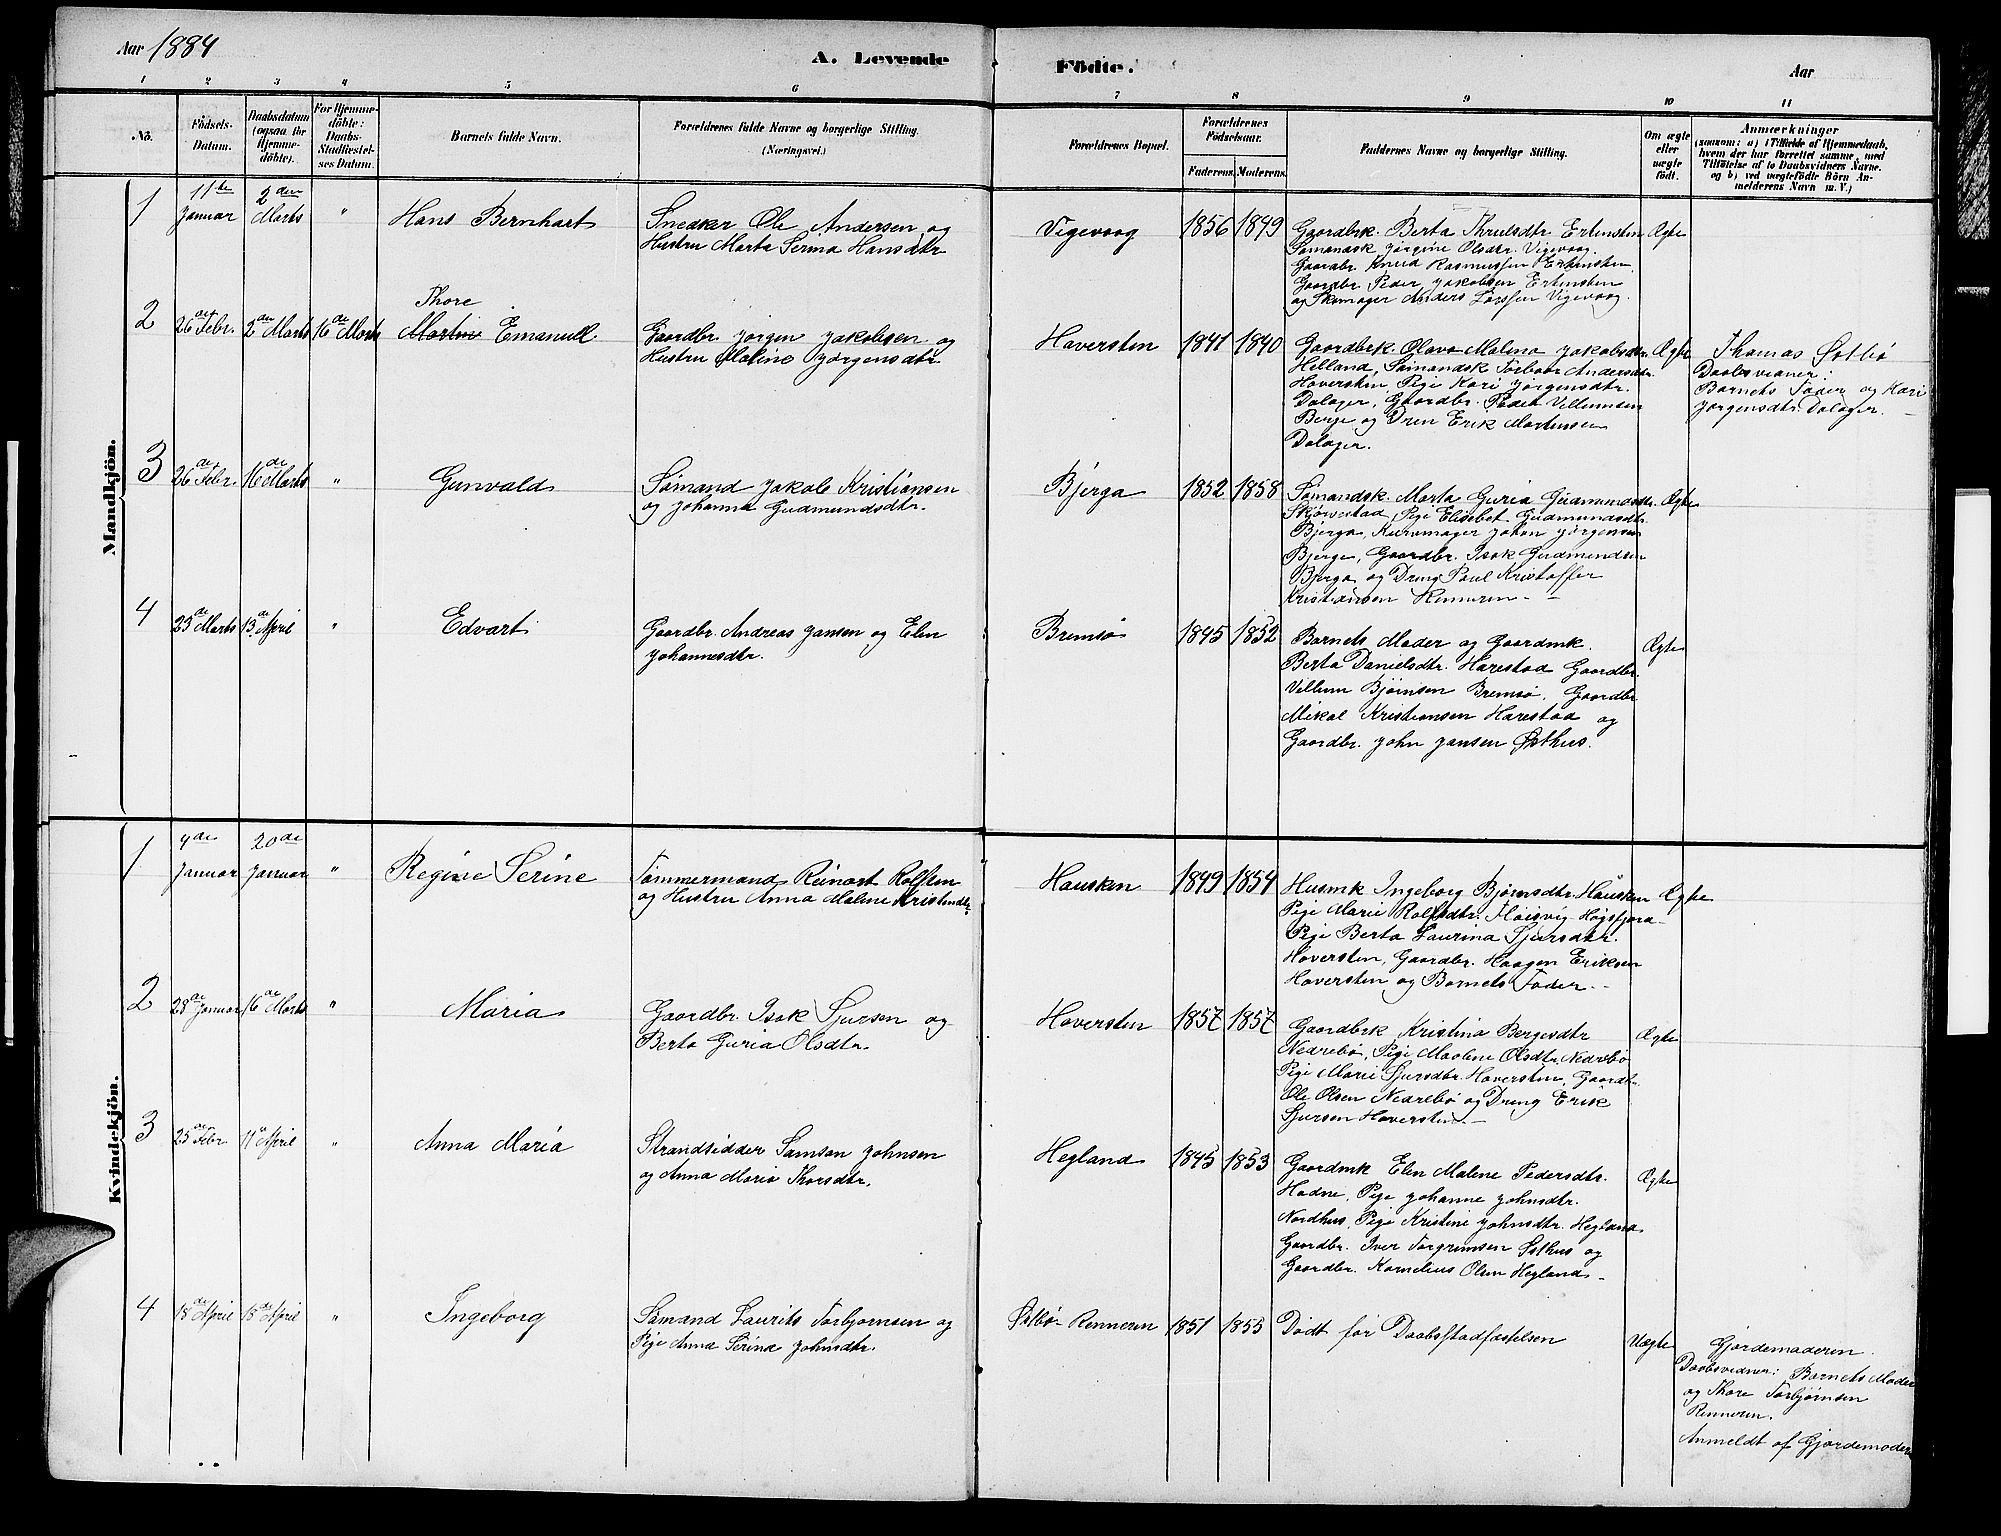 Aar 1884
A. Levende Födte.
Aar
1 2 3 4 5 6 7 8 9 10 11
No.
Födsels-Datum.
Daabsdatum (ogsaa for Hjemmedöbte).
For Hjemmedöbte: Daabs-Stadfæstelses Datum.
Barnets fulde Navn.
Forældrenes fulde Navne og borgerlige Stilling. (Næringsvei.)
Forældrenes Bopæl.
Forældrenes Födselsaar.
Faderens. Moderens.
Faddernes Navne og borgerlige Stilling.
Om ægte eller uægte födt.
Anmærkninger
(saasom: a) i Tilfælde af Hjemmedaab, hvem der har forrettet samme, med Tilföielse af to Daabsvidners Navne. og b) ved uægtefödte Börn Anmelderens Navn m. V.)
Mandkjön.
1
11te Januar
2den Marts
"
Hans Bernhart
Snedker Ole Andersen og
Hustru Marta Serina Hansdtr
Vigevaag
1856 1849
Gaardbrk. Berta Thrulsdtr Ertensten
Sömandsk Jörgine Olsdtr. Vigevaag
Gaardbr. Knud Rasmussen Ertensten
Gaardbr Peder Jakobsen Ertensten
og Skomager Anders Larssen Vigevaag.
Ægte
2
26de Febr.
2den Marts
16de Marts
Thore
Martin Emanuel
Gaardbr. Jørgen Jakobsen og
Hustru Maline Jørgensdtr.
Haversten
1841 1840
Gaardbrk. Olava Malena Jakobsdtr.
Helland, Sømandsk Torboer Andersdtr.
Haversten Pige Kari Jørgensdtr.
Dalager, Gaardbr. Peder Villumsen
Berge og Dren Erik Martinsen
Dalager.
Ægte
Thomas Østbø
Daabsvidner:
Barnets Fader og Kari
Jørgensdtr. Dalager.
3
26de Febr.
16de Marts
"
Gunvald
Sømand Jakob Kristiansen
og Johanna Gudmundsdtr.
Bjerga
1852 1858
Sømandsk. Marta Guria Gudmundsdtr.
Pige Elisebet Gudmundsdtr.
Bjerga, Kurvmager Johan Jørgensen
Bjerge, Gaardbr. Isak Gudmundsen
Bjerga og Dreng Paul Kristoffer
Kristiansen Renneren.
Ægte
4
23de Marts
13de April
"
Edvart
Gaardbr. Andreas Jansen og Elen
Johannesdtr.
Bremsø
1845 1852
Barnets Moder og Gaardmk.
Berta Danielsdtr. Harestad Gaardbr.
Villum Bjørnsen Bremsø, Gaardbr
Mikal Kristiansen Harestad og
Gaardbr. John Jansen Østhus.
Ægte
Kvindekjön.
1
4de Januar
20de Januar
"
Regine Serine
Tømmermand Reinart Rolfsen
og Hustru Anna Malene Kristendtr.
Hausken
1849 1854
Husmk Ingeborg Bjørnsdtr. Hausken
Pige Marie Rolfsdtr. Høgsfjord
Pige Berta Laurina Sjursdtr.
Haversten, Gaardbr. Haagen Eriksen
Haversten og Barnets Fader.
Ægte
2
28de Januar
16de Marts
"
Maria
Gaardbr. Isak Sjursen og
Berta Guria Olsdtr.
Haversten
1857 1857
Gaardbrk Kristina Bergesdtr
Nedrebø, Pige Malene Olsdtr. Nedrebø
Pige Marie Sjursdtr. Haversten, Gaardbr.
Ole Olsen Nedrebø og Dreng Erik
Sjursen Haversten.
Ægte
3
25de Febr.
11te April
"
Anna Maria
Strandsidder Samson Johnsen
og Anna Maria Thorsdtr.
Hegland
1845 1853
Gaardmk Elen Malene Pedersdtr.
Hodne, Pige Johanne Johnsdtr.
Nordhus, Pige Kristine Johnsdtr. Hegland
Gaardbr. Iver Torgrimsen Østhus og
Gaardbr. Kornelius Olsen Hegland.
Ægte
4
18de April
18de April
"
Ingeborg
Sømand Laurits Torbjørnsen og
Pige Anna Serine Johnsdtr.
Østbø Renneren
1851 1855
Dødt før Daabsstadfæstelsen
Uægte
Gjordemoderen.
Daabsvidner: Barnets Moder
og Thore Torbjørnsen
Renneren.
Anmeldt af Gjordemoderen